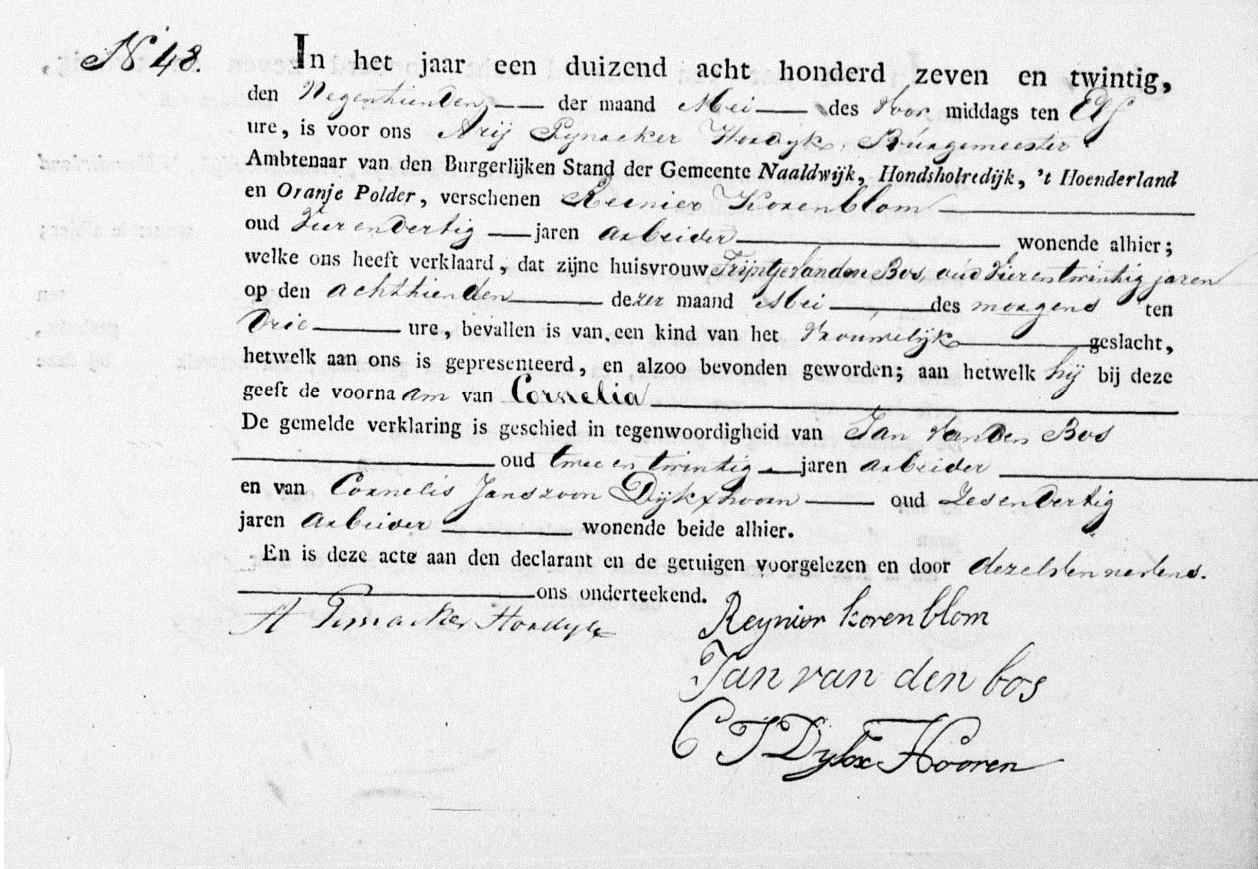 N 48.
In het jaar een duizend acht honderd zeven en twintig,
den Negenthienden der maand Mei des Voor middags ten Elf
ure, is voor ons Arij Pynacker Hordyk, Burgemeester
Ambtenaar van den Burgerlijken Stand der Gemeente Naaldwijk, Hondsholredijk, 't Hoenderland
en Oranje Polder, verschenen Reinier Korenblom
oud Vier en dertig jaren arbeider wonende alhier;
welke ons heeft verklaard, dat zijne huisvrouw Trijntje van den Bos, oud Vier en twintig jaren
op den achtthienden dezer maand Mei des morgens ten
Drie ure, bevallen is van een kind van het Vrouwelijk geslacht,
hetwelk aan ons is gepresenteerd, en alzoo bevonden geworden; aan hetwelk hij bij deze
geeft de voornaam van Cornelia
De gemelde verklaring is geschied in tegenwoordigheid van Jan van den Bos
oud twee en twintig jaren arbeider
en van Cornelis Janszoon Dijkxhoorn oud Zes en dertig
jaren arbeider wonende beide alhier.
En is deze acte aan den declarant en de getuigen voorgelezen en door dezelven nevens
ons onderteekend.
A Pynacker Hordijk
Reynier korenblom
Jan van den bos
C J Dykx Hooren